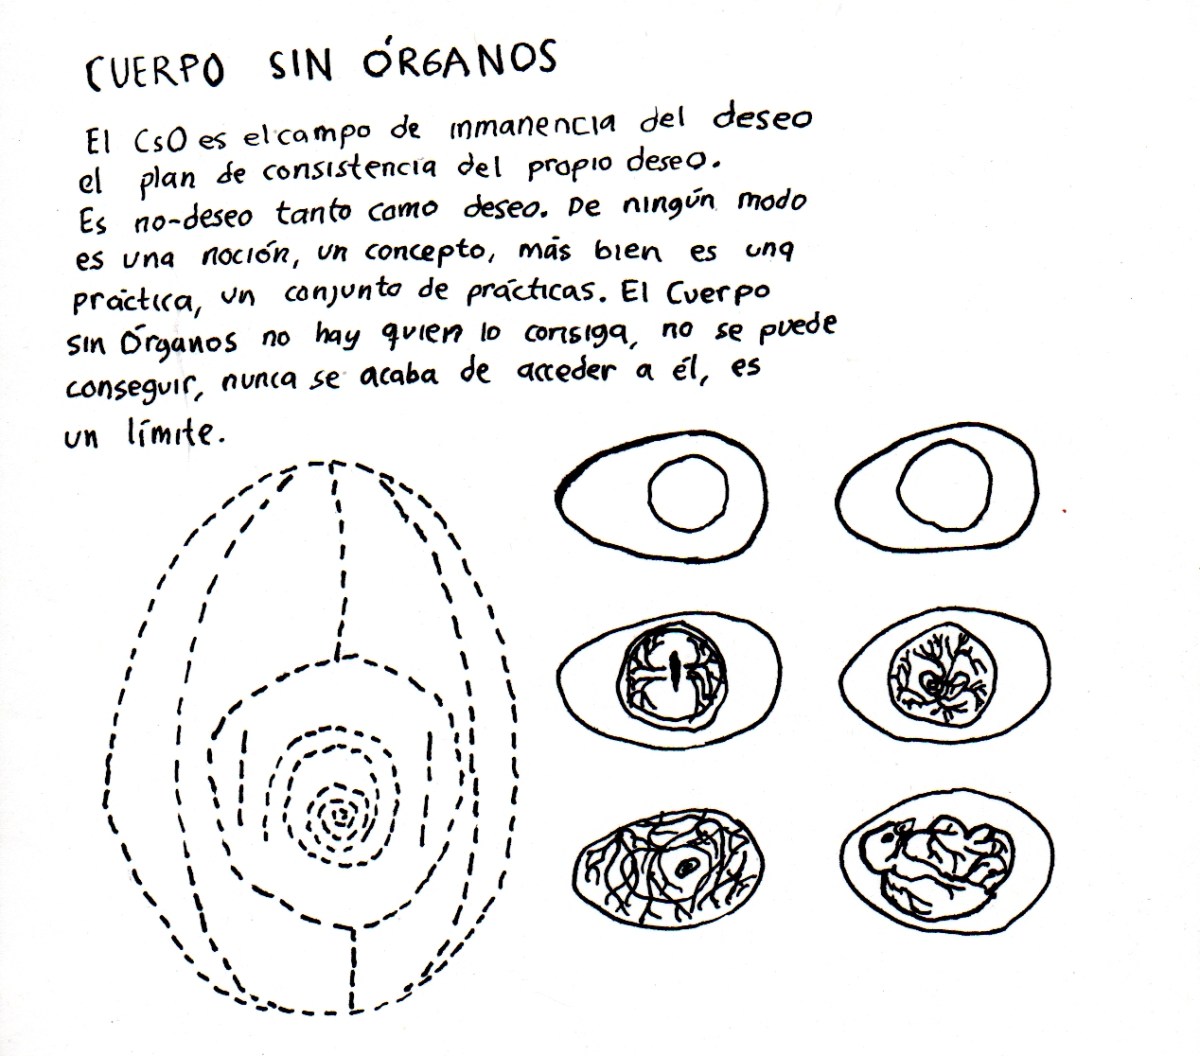 CUERPO SIN ÓRGANOS
El CsO es el campo de inmanencia del deseo
el plan de consistencia del propio deseo.
Es no-deseo tanto como deseo. De ningún modo
es una noción, un concepto, más bien es una
práctica, un conjunto de prácticas. El Cuerpo
sin Órganos no hay quien lo consiga, no se puede
conseguir, nunca se acaba de acceder a él, es
un límite.